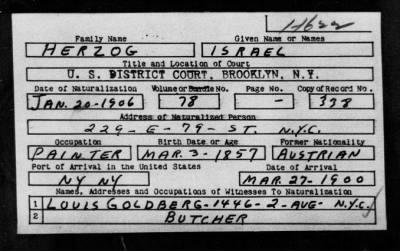 H622
Family Name Given Name or Names
HERZOG ISRAEL
Title and Location of Court
U. S. DISTRICT COURT, BROOKLYN, N.Y.
Date of Naturalization Volume or Bundle No. Page No. Copy of Record No.
JAN. 20-1906 78 - 378
Address of Naturalized Person
229-E-79-ST. N.Y.C.
Occupation Birth Date or Age Former Nationality
PAINTER MAR. 3-1857 AUSTRIAN
Port of Arrival in the United States Date of Arrival
NY NY MAR. 27-1900
Names, Addresses and Occupations of Witnesses To Naturalization
1 LOUIS GOLDBERG-1446-2-AUG- N.Y.C.
2 BUTCHER